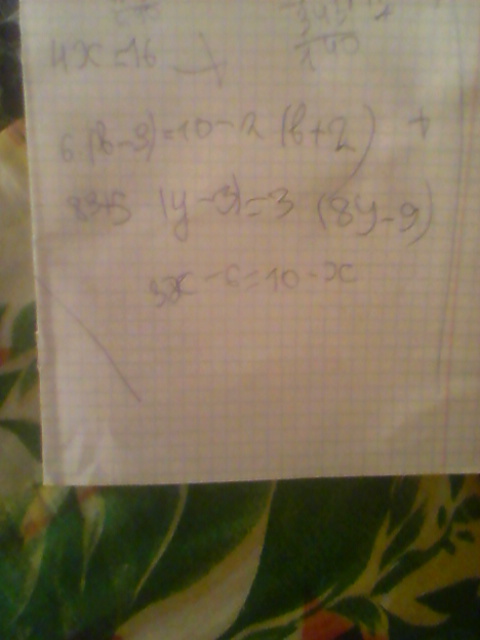 4x=16
6(b-3)=10-2(b+2) +
83+5 (y-3)=3 (8y-9)
3x-6=10-x